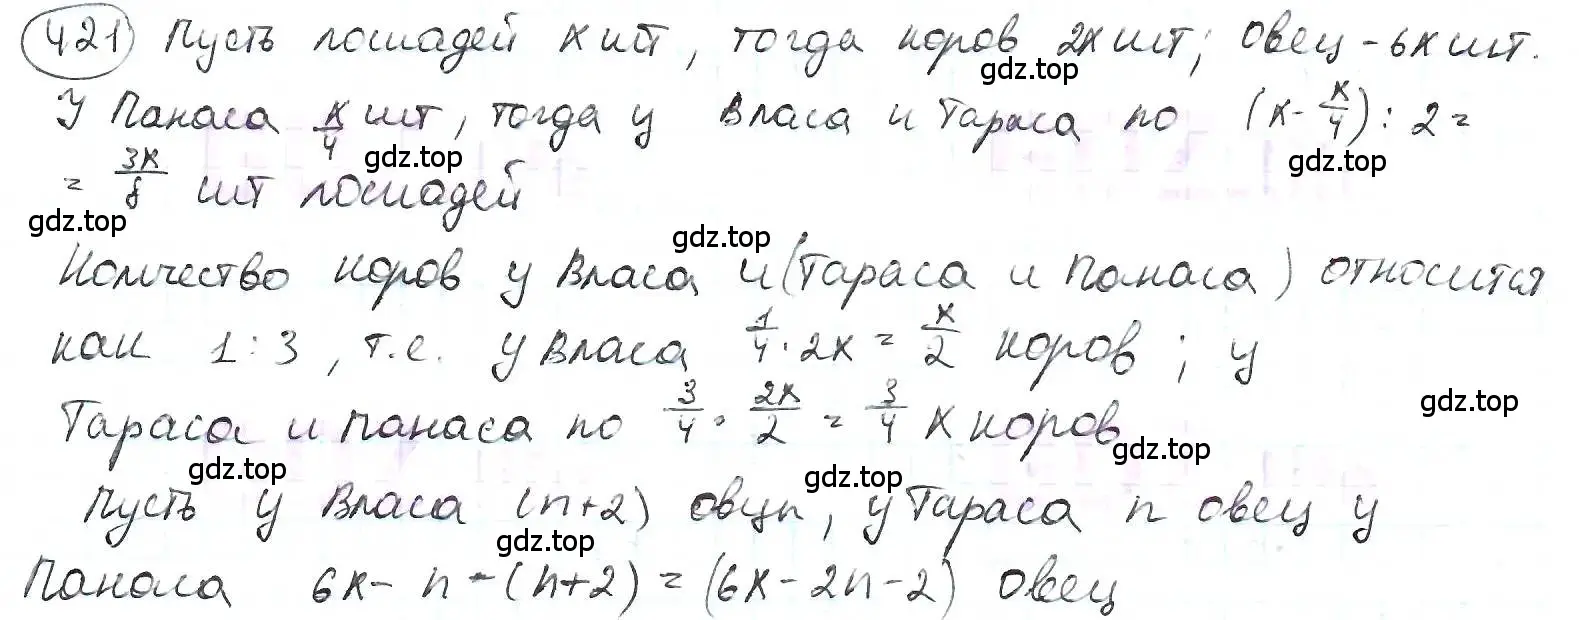 421 Пусть лошадей x шт, тогда коров 2x шт; овец - 6x шт.
gdz.top
У Панаса x/4 шт, тогда у Власа и Тараса по (x - x/4) : 2 =
gdz.top gdz.top
= 3x/8 шт лошадей
gdz.top gdz.top
Количество коров у Власа и (Тараса и Панаса) относится
как 1 : 3, т.е. у Власа 1/4 · 2x = x/2 коров; у
gdz.top
Тараса и Панаса по 3/4 · 2x/2 = 3/4 x коров
gdz.top gdz.top gdz.top
Пусть у Власа (n+2) овцы, у Тараса n овец у
gdz.top
Панаса 6x - n - (n+2) = (6x - 2n - 2) овец